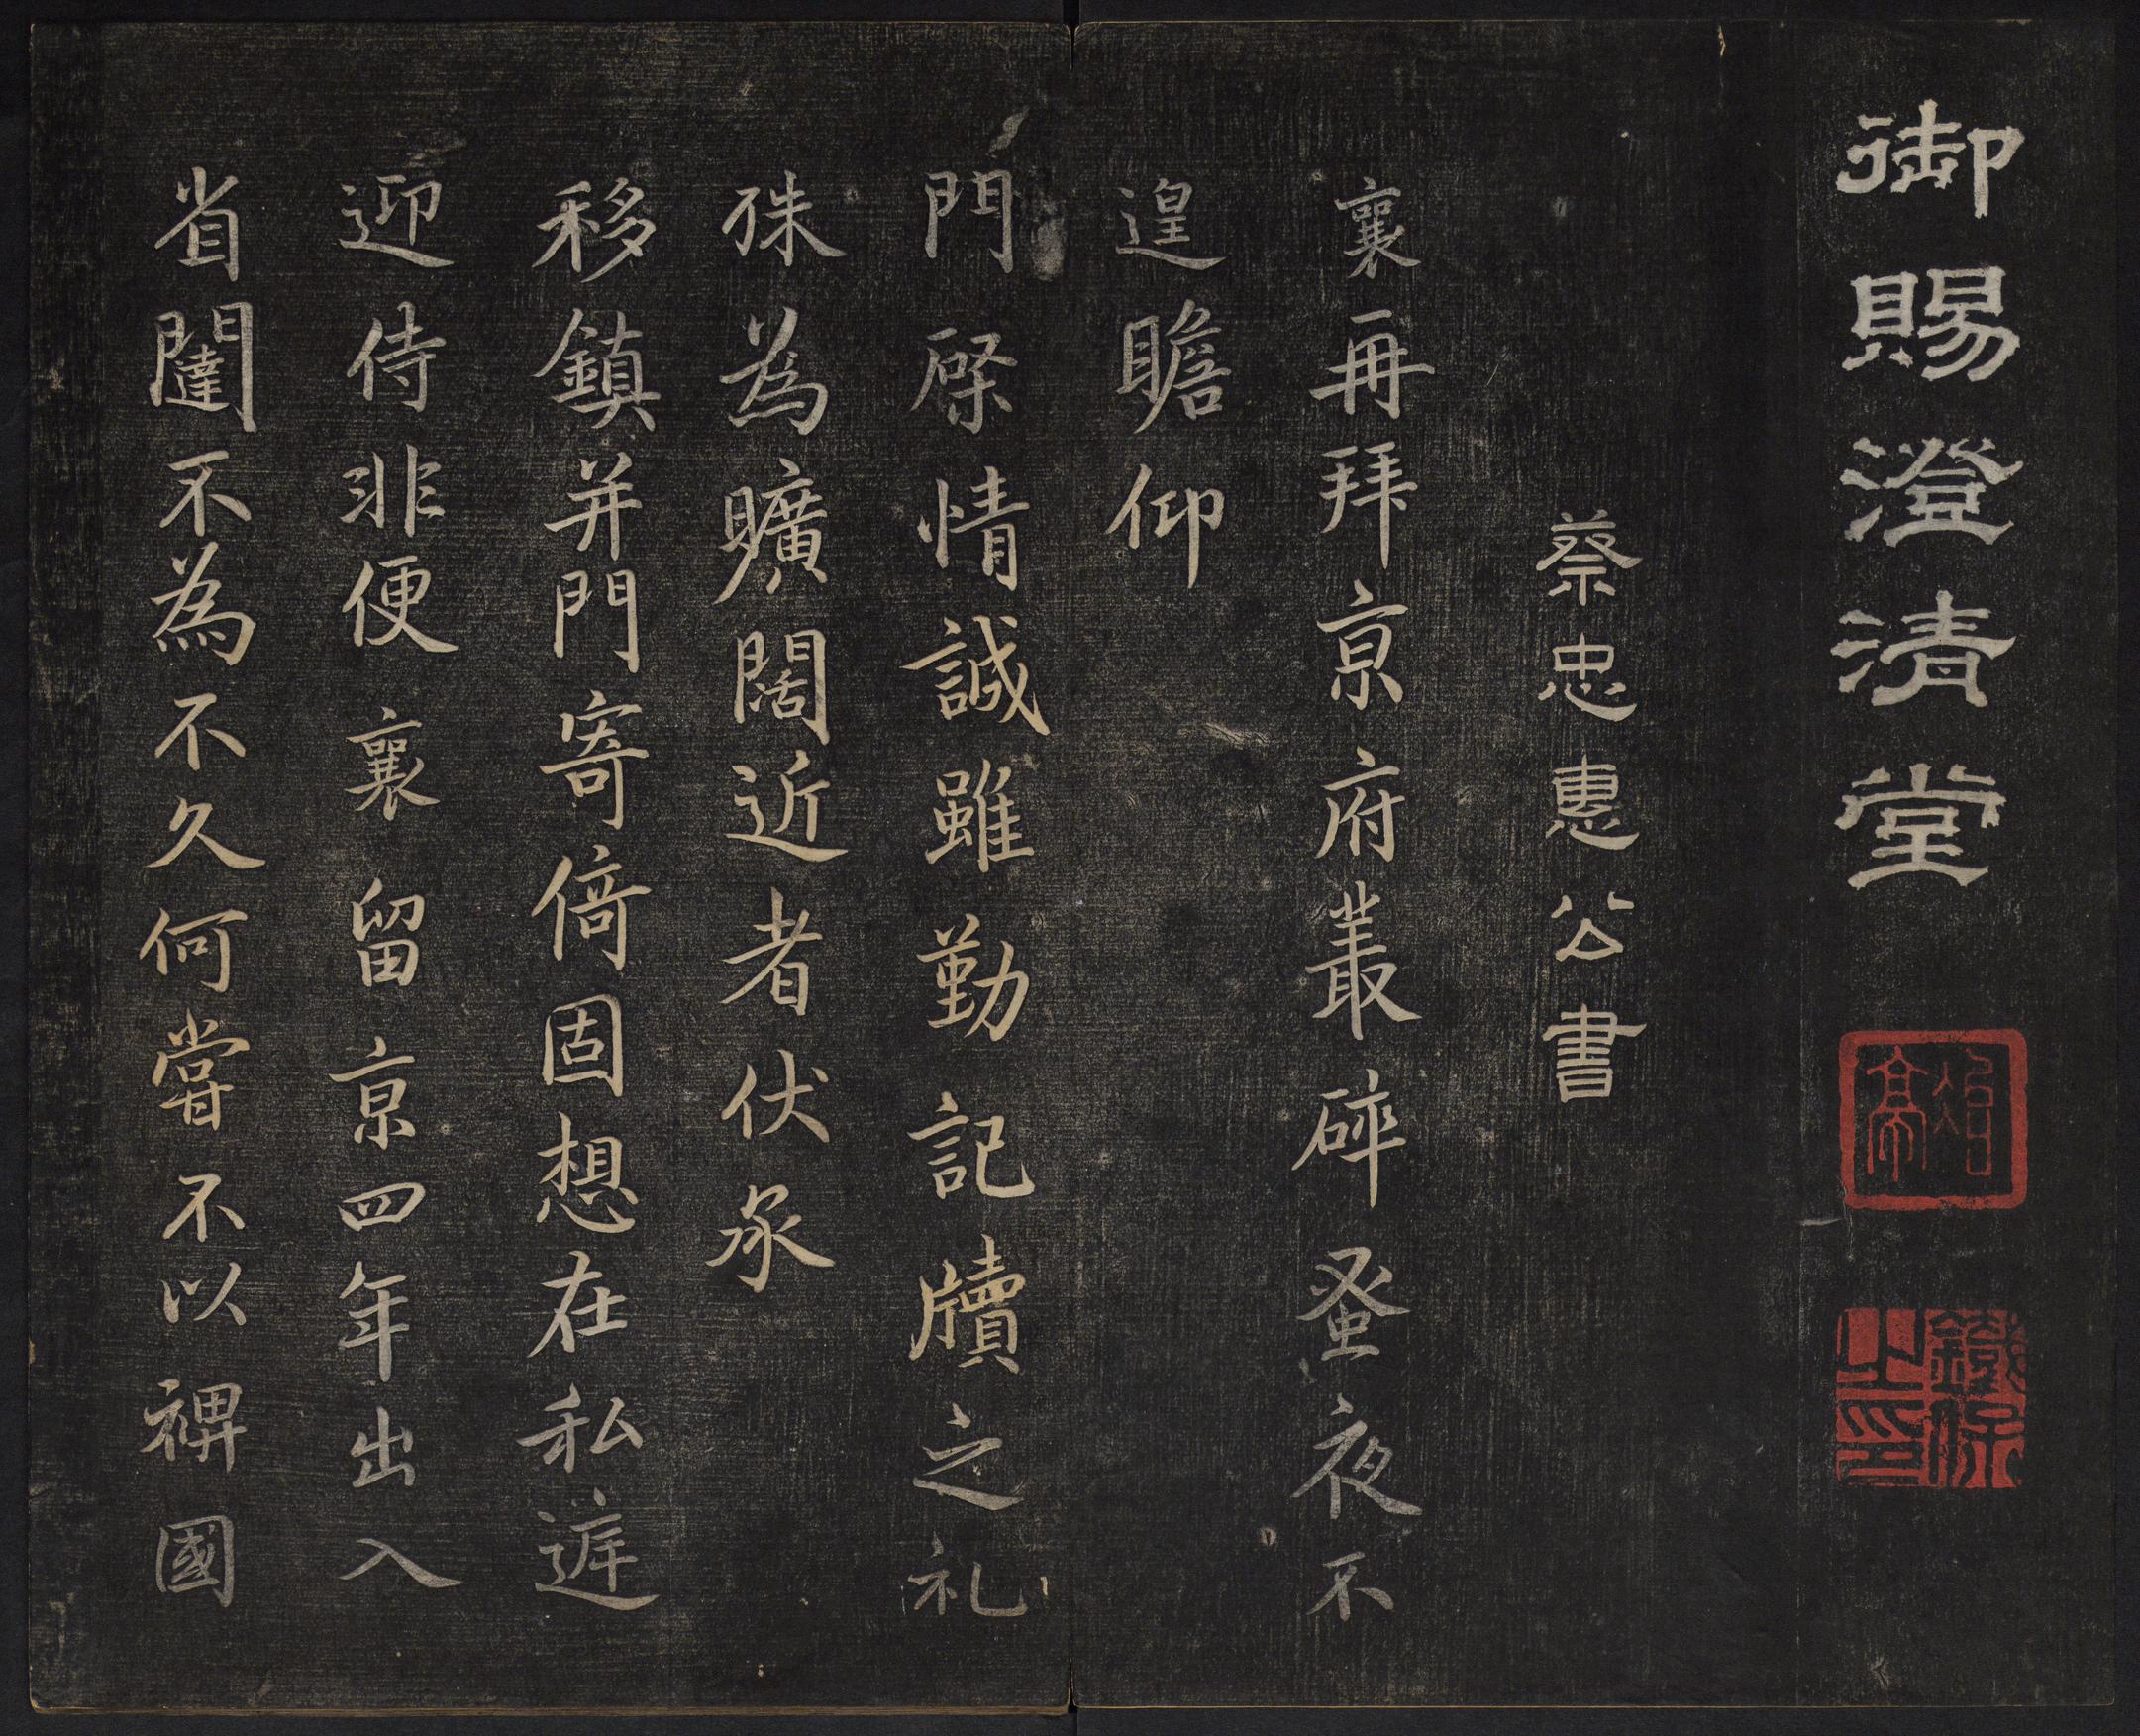 御賜澄清堂
冶亭
鐵保之印
蔡忠惠公書
襄再拜京府叢碎蚤夜不
遑瞻仰
門檕情誠雖勤記牘之礼
殊為曠闊近者伏承
移鎮并門寄倚固想在私遅
迎侍非便襄留京四年出入
省闥不為不久何嘗不以裨國